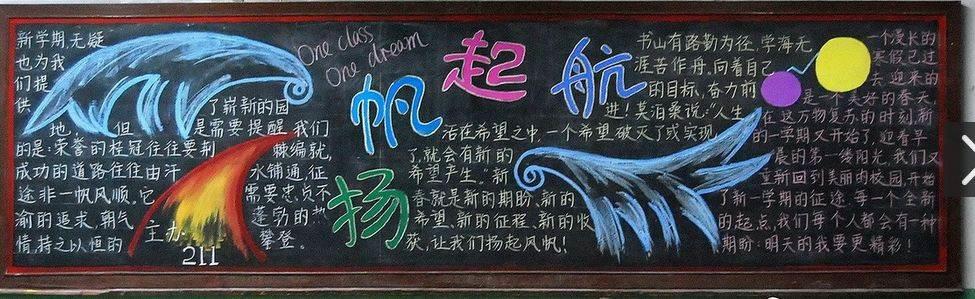 新学期,无疑
也为我
们提
供 了崭新的园
地。但 是需要提醒我们
的是:荣誉的桂冠往往要荆 棘编就,
成功的道路往往由汗 水铺通,征
途非一帆风顺。它 需要忠贞不
渝的追求,朝气 蓬勃的热
情,持之以恒的 攀登。
主办
211
One class
One dream
扬帆起航
书山有路勤为径,学海无
涯苦作舟。向着自己
的目标,奋力前
进!莫泊桑说:“人生
活在希望之中 一个希望破灭了或实现
了,就会有新的
希望产生。”新
春就是新的期盼、新的
希望、新的征程、新的收
获,让我们扬起风帆!
一个漫长的
寒假已过
去,迎来的
是一个美好的春天,
在这万物复苏的时刻,新
的一学期又开始了,迎着早
晨的第一缕阳光,我们又
重新回到美丽的校园,开始
了新一学期的征途。每一个全新
的起点,我们每个人都会有一种
期盼:明天的我要更精彩!